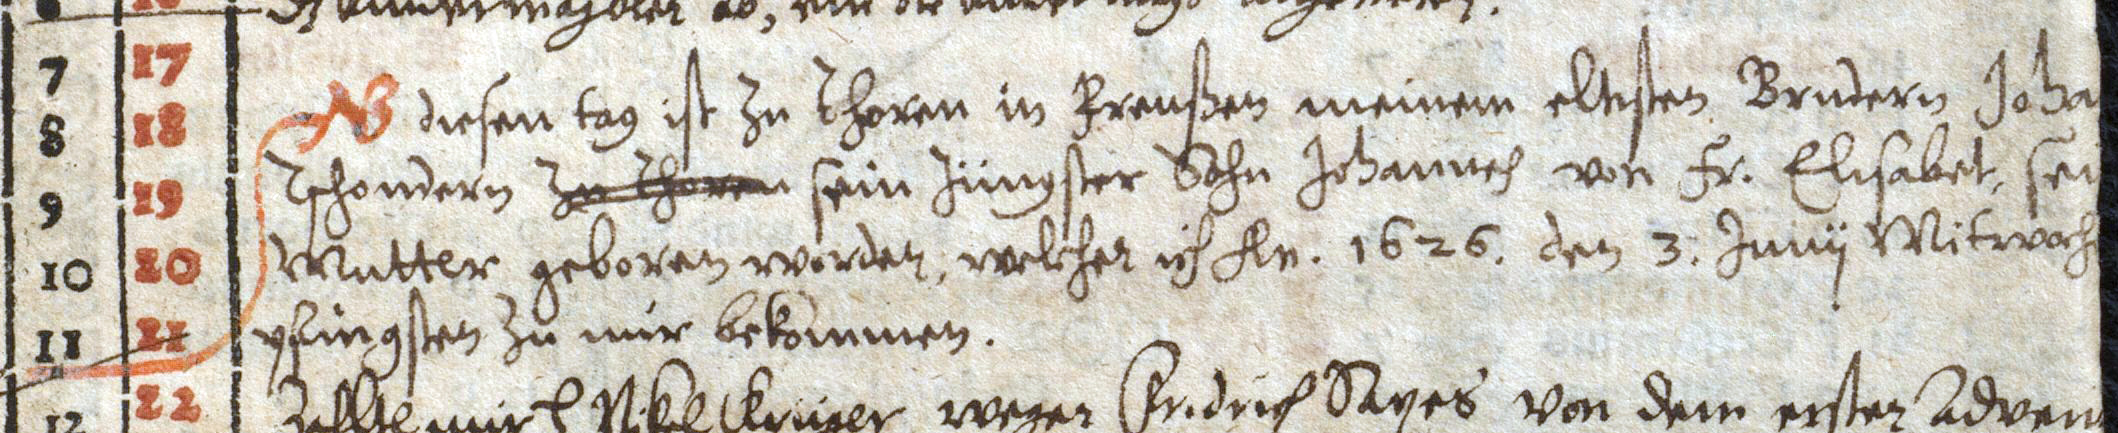 7 17
8 18 NB diesen tag ist zu Thoren in Preußen meinem eltesten Brudern Joha
9 19 Tschondern zu Thoren sein Jüngster Sohn Johannes von Fr. Elisabet, sei
10 20 Mutter geboren worden, welchen ich An. 1626. den 3. Junij Mitwoch
11 21 pfingsten zu mir bekommen.
12 22 mir Nikel Krüger wegen Fridrich von dem ersten Adven